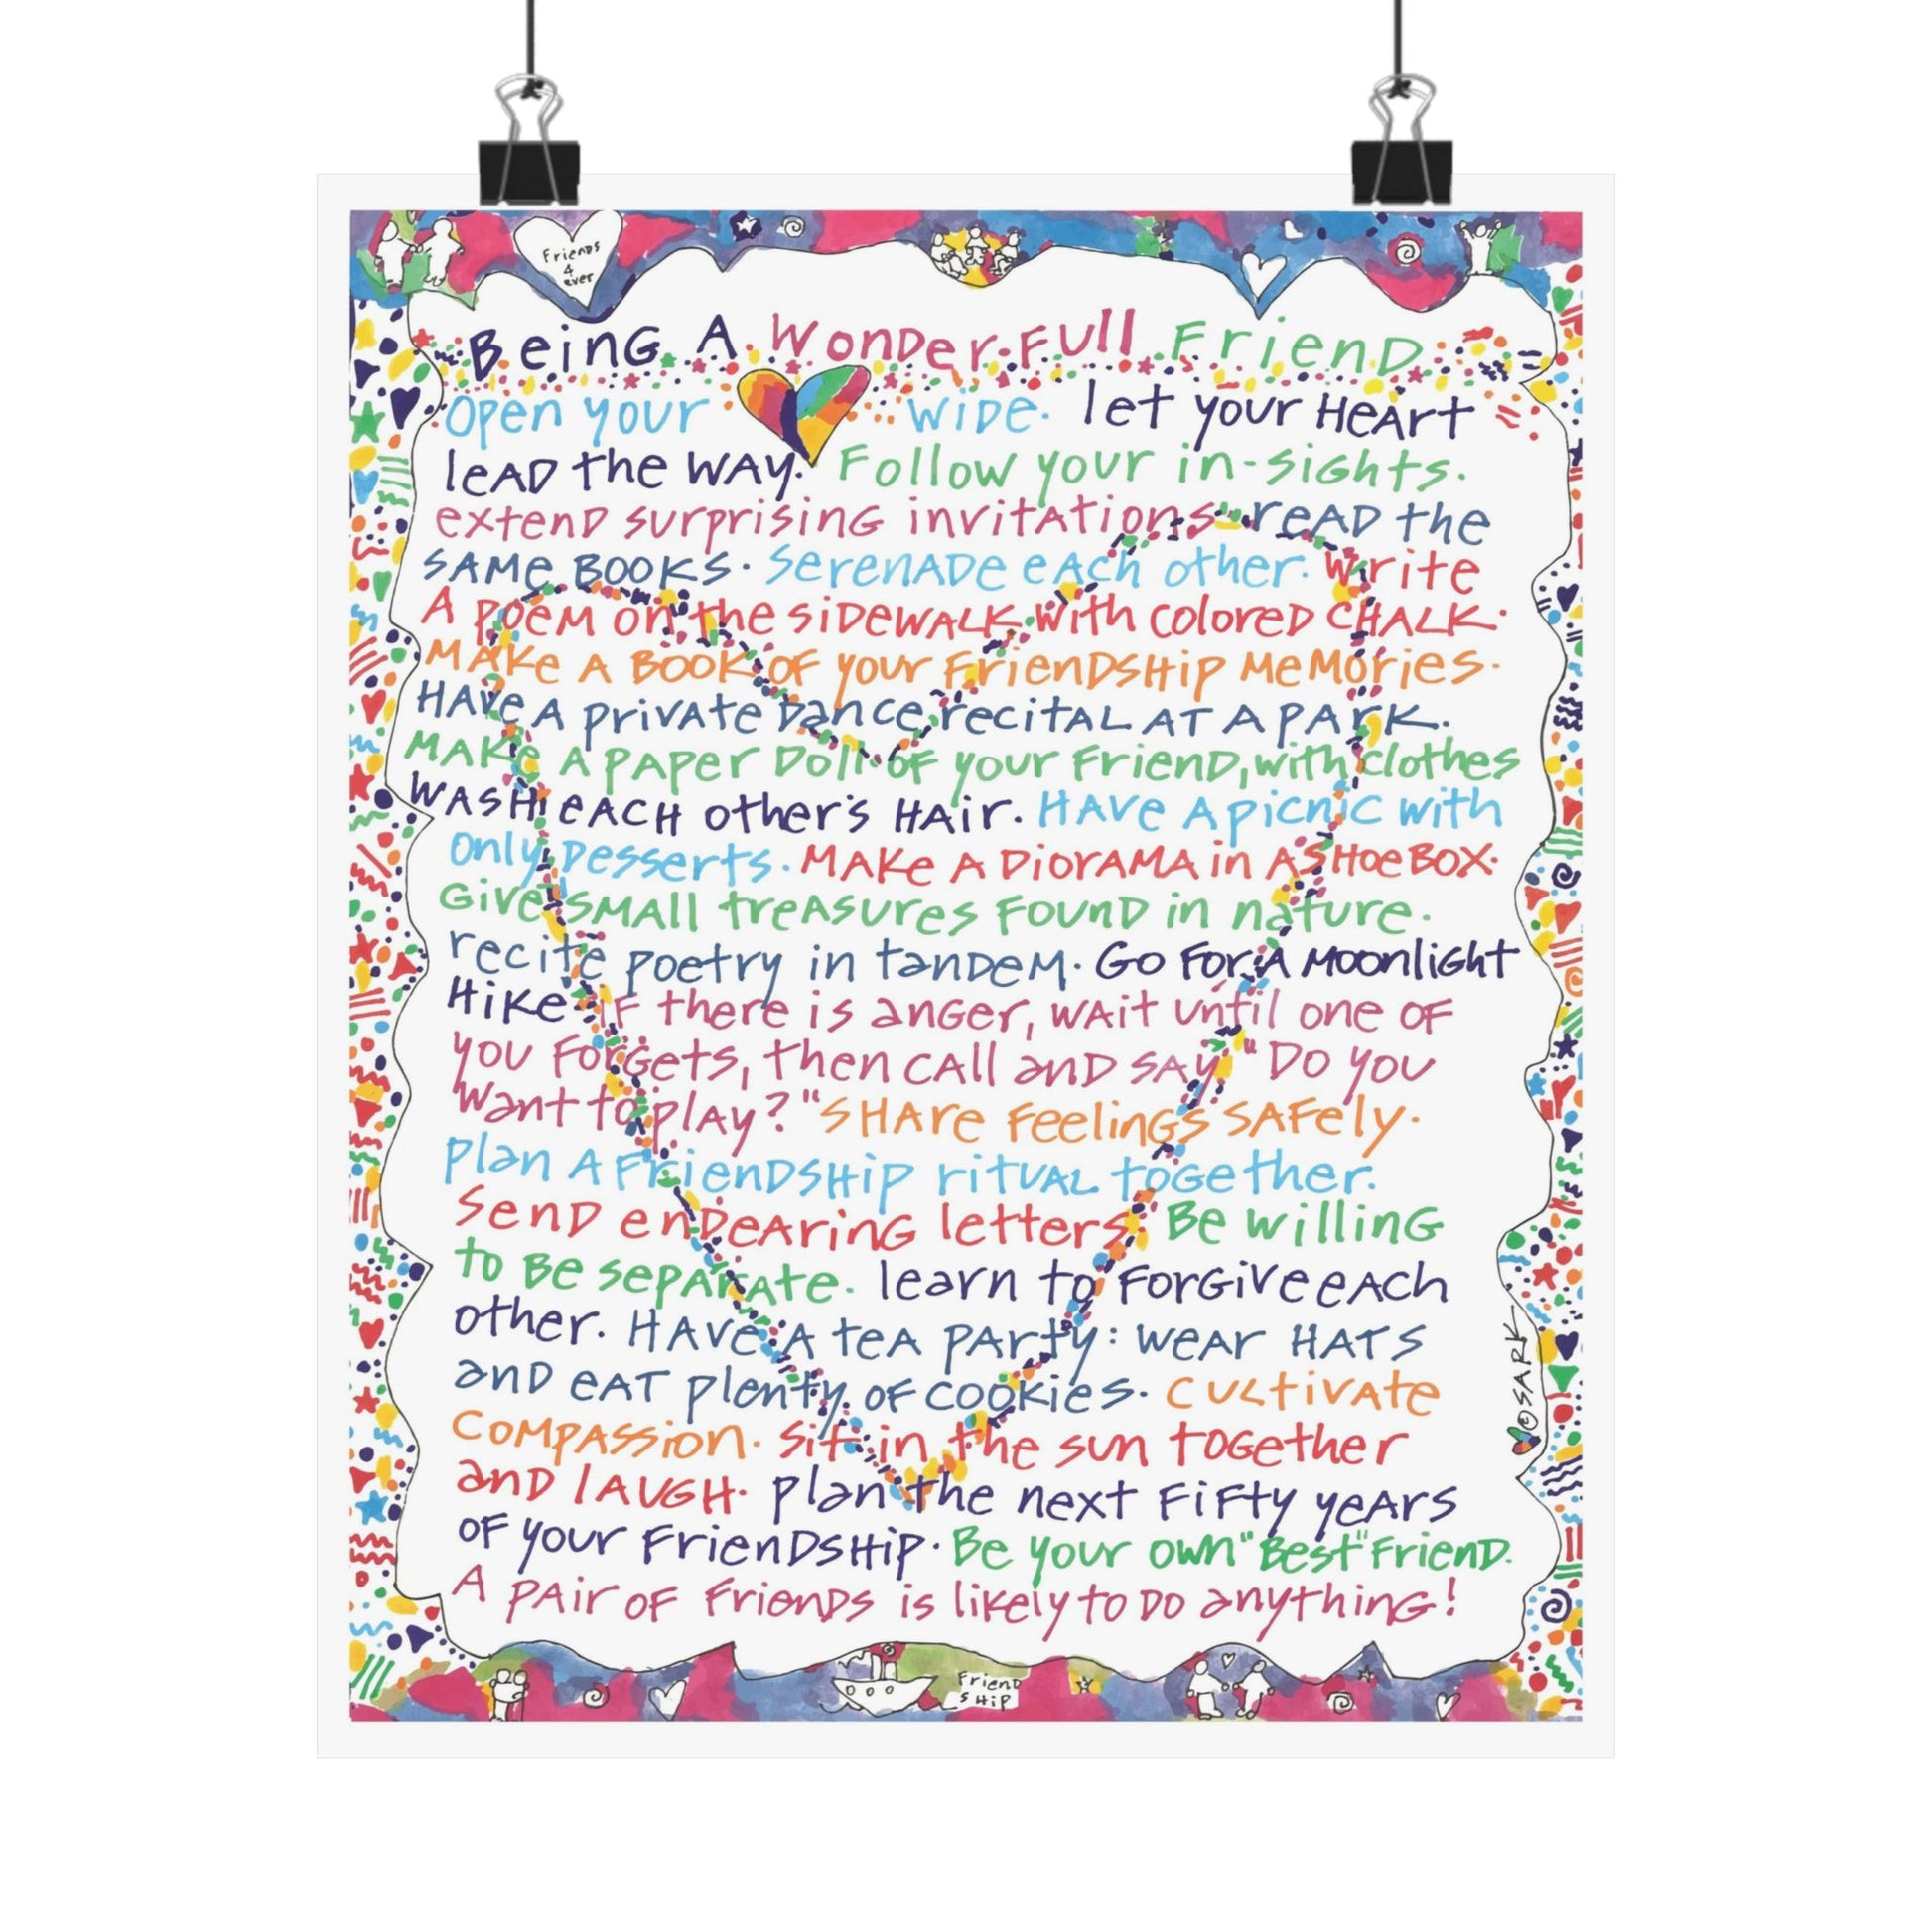 Friends
4
ever
Being A Wonder-Full Friend
Open your wide. let your Heart
lead the way. Follow your in-sights.
extend surprising invitations. read the
same books. Serenade each other. Write
A poem on the sidewalk with colored chalk.
Make a book of your friendship memories.
Have a private dance recital at a park.
Make a paper doll of your friend, with clothes
Wash each other's hair. Have a picnic with
only desserts. Make a diorama in a shoe box.
Give small treasures found in nature.
recite poetry in tandem. Go for a moonlight
Hike. If there is anger, wait until one of
you forgets, then call and say "Do you
want to play?" Share feelings safely.
plan a friendship ritual together.
Send endearing letters. Be willing
to be separate. learn to forgive each
other. Have a tea party: wear hats
and eat plenty of cookies. Cultivate
compassion. Sit in the sun together
and laugh. plan the next fifty years
of your friendship. Be your own "Best" Friend.
A pair of friends is likely to do anything!
©SARK
Friend
ship